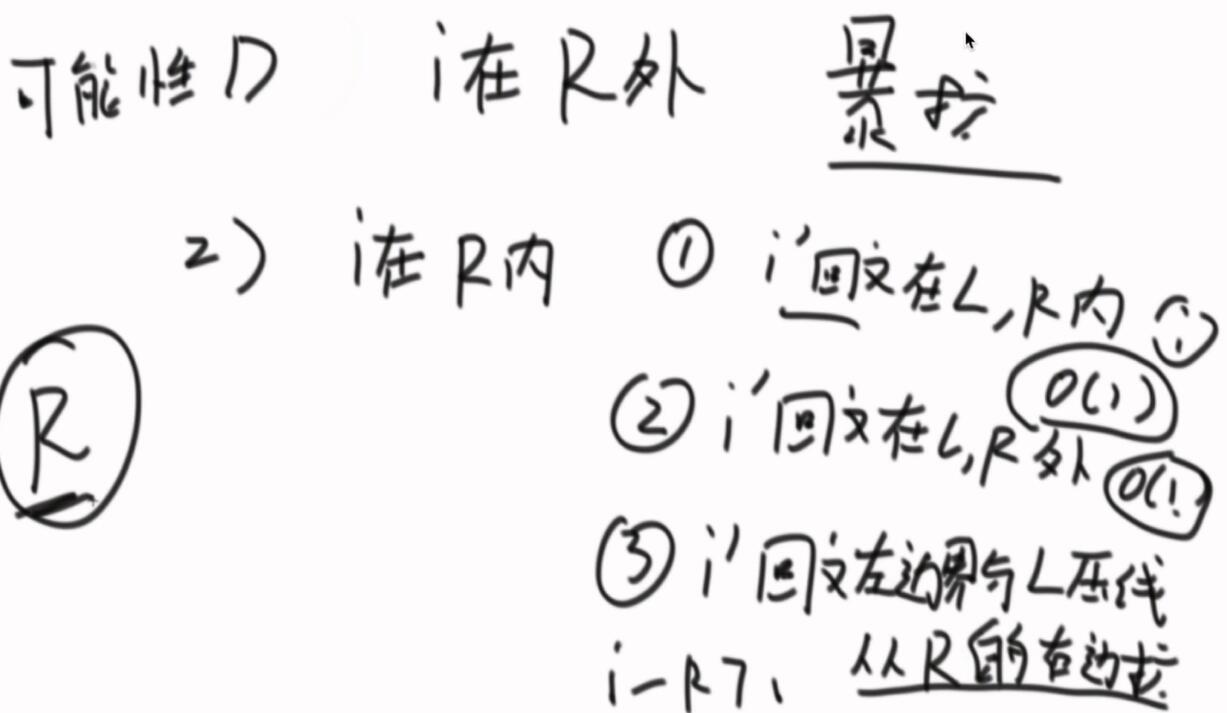 可能性 1) i在R外 暴扩
2) i在R内 ① i'回文在L,R内
O(1)
② i'回文在L,R外 O(1)
R
③ i'回文左边界与L压线
从R的右边扩